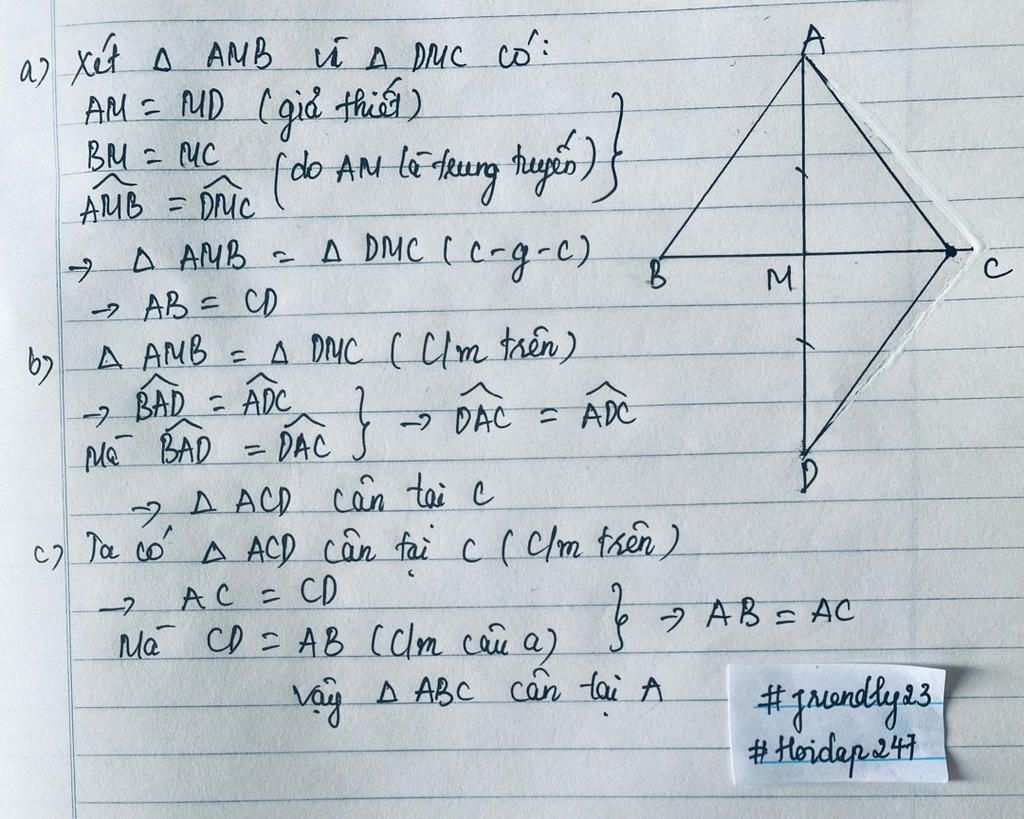 a) Xét Δ AMB và Δ DMC có:
AM = MD (giả thiết)
BM = MC (do AM là trung tuyến)
∠AMB = ∠DMC
→ Δ AMB = Δ DMC (c-g-c)
→ AB = CD
b) Δ AMB = Δ DMC (C/m trên)
→ ∠BAD = ∠ADC
Mà ∠BAD = ∠DAC } → ∠DAC = ∠ADC
→ Δ ACD cân tai C
c) Ta có Δ ACD cân tại C (C/m trên)
→ AC = CD
Mà CD = AB (C/m câu a) } → AB = AC
Vậy Δ ABC cân tại A
A
B
M
C
D
#friendly23
#Hoidap247